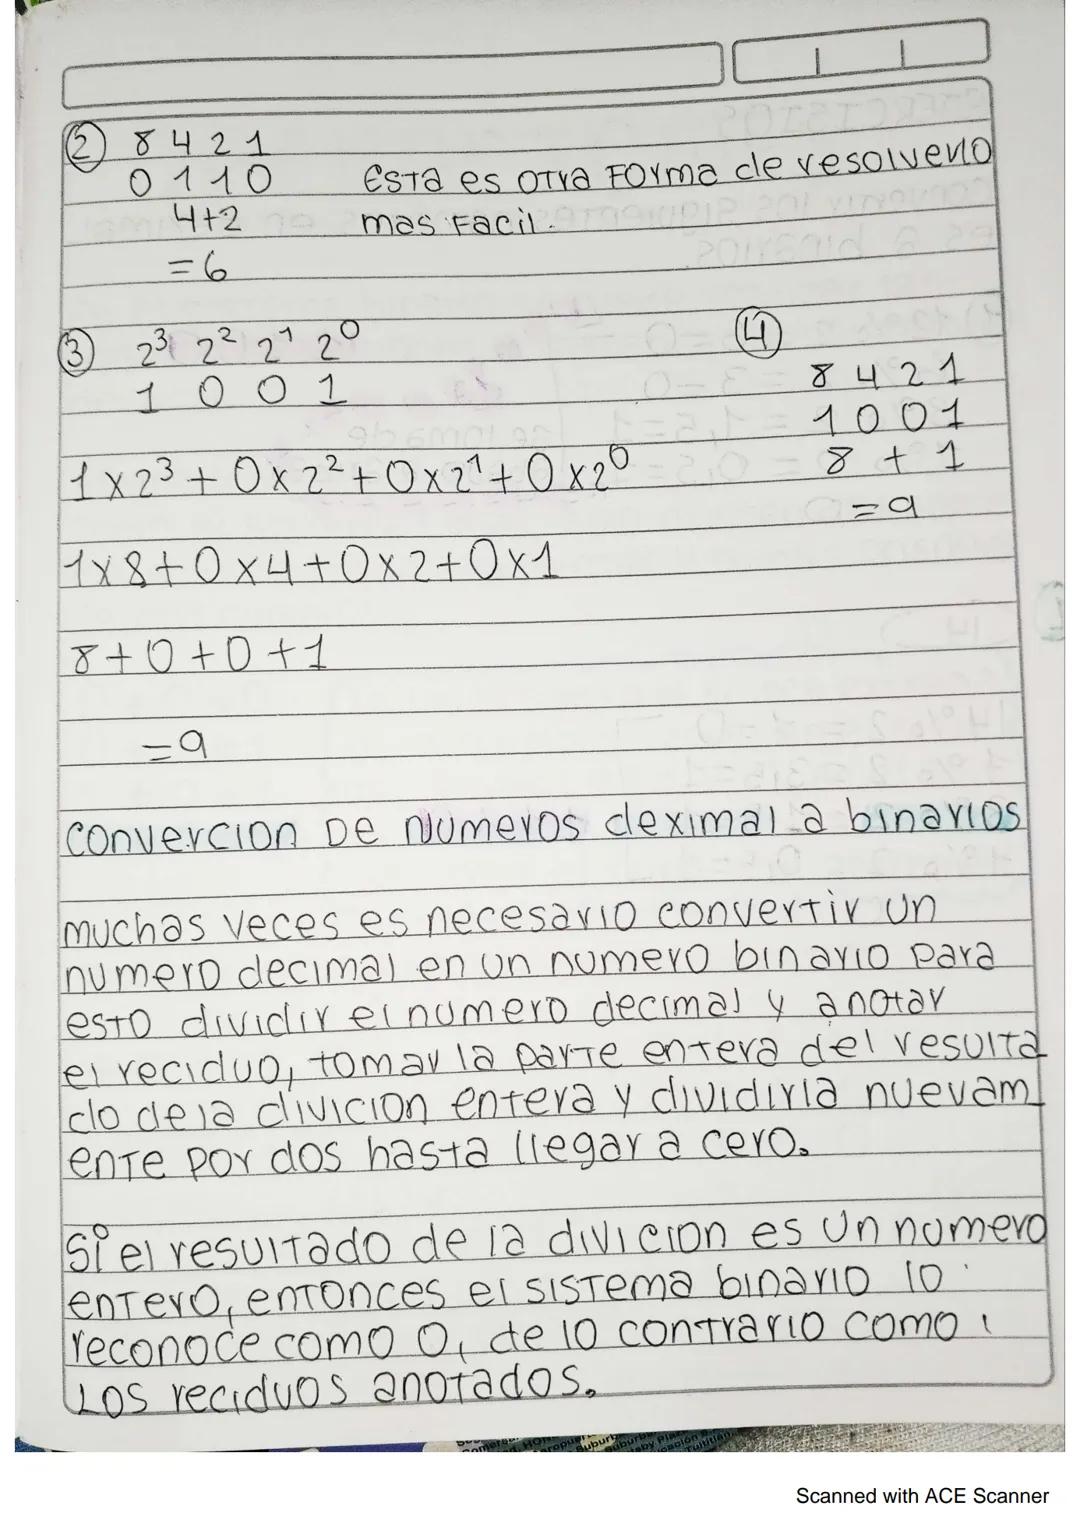 ② 8 4 2 1
0 1 1 0 Esta es otra forma de resolverlo
4+2 mas facil.
=6
③ 2³ 2² 2¹ 2⁰
1 0 0 1
1x2³+0x2²+0x2¹+0x2⁰
1x8+0x4+0x2+0x1
8+0+0+1
=9
④
8 4 2 1
1 0 0 1
8 + 1
=9
convercion De numeros deximal a binarios
muchas veces es necesario convertir un
numero decimal en un numero binario para
esto dividir el numero decimal y anotar
el reciduo, tomar la parte entera del resulta
do de la divicion entera y dividirla nuevam
ente por dos hasta llegar a cero.
Si el resultado de la divicion es un numero
entero, entonces el sistema binario lo
reconoce como 0, de lo contrario como 1
Los reciduos anotados.
Scanned with ACE Scanner